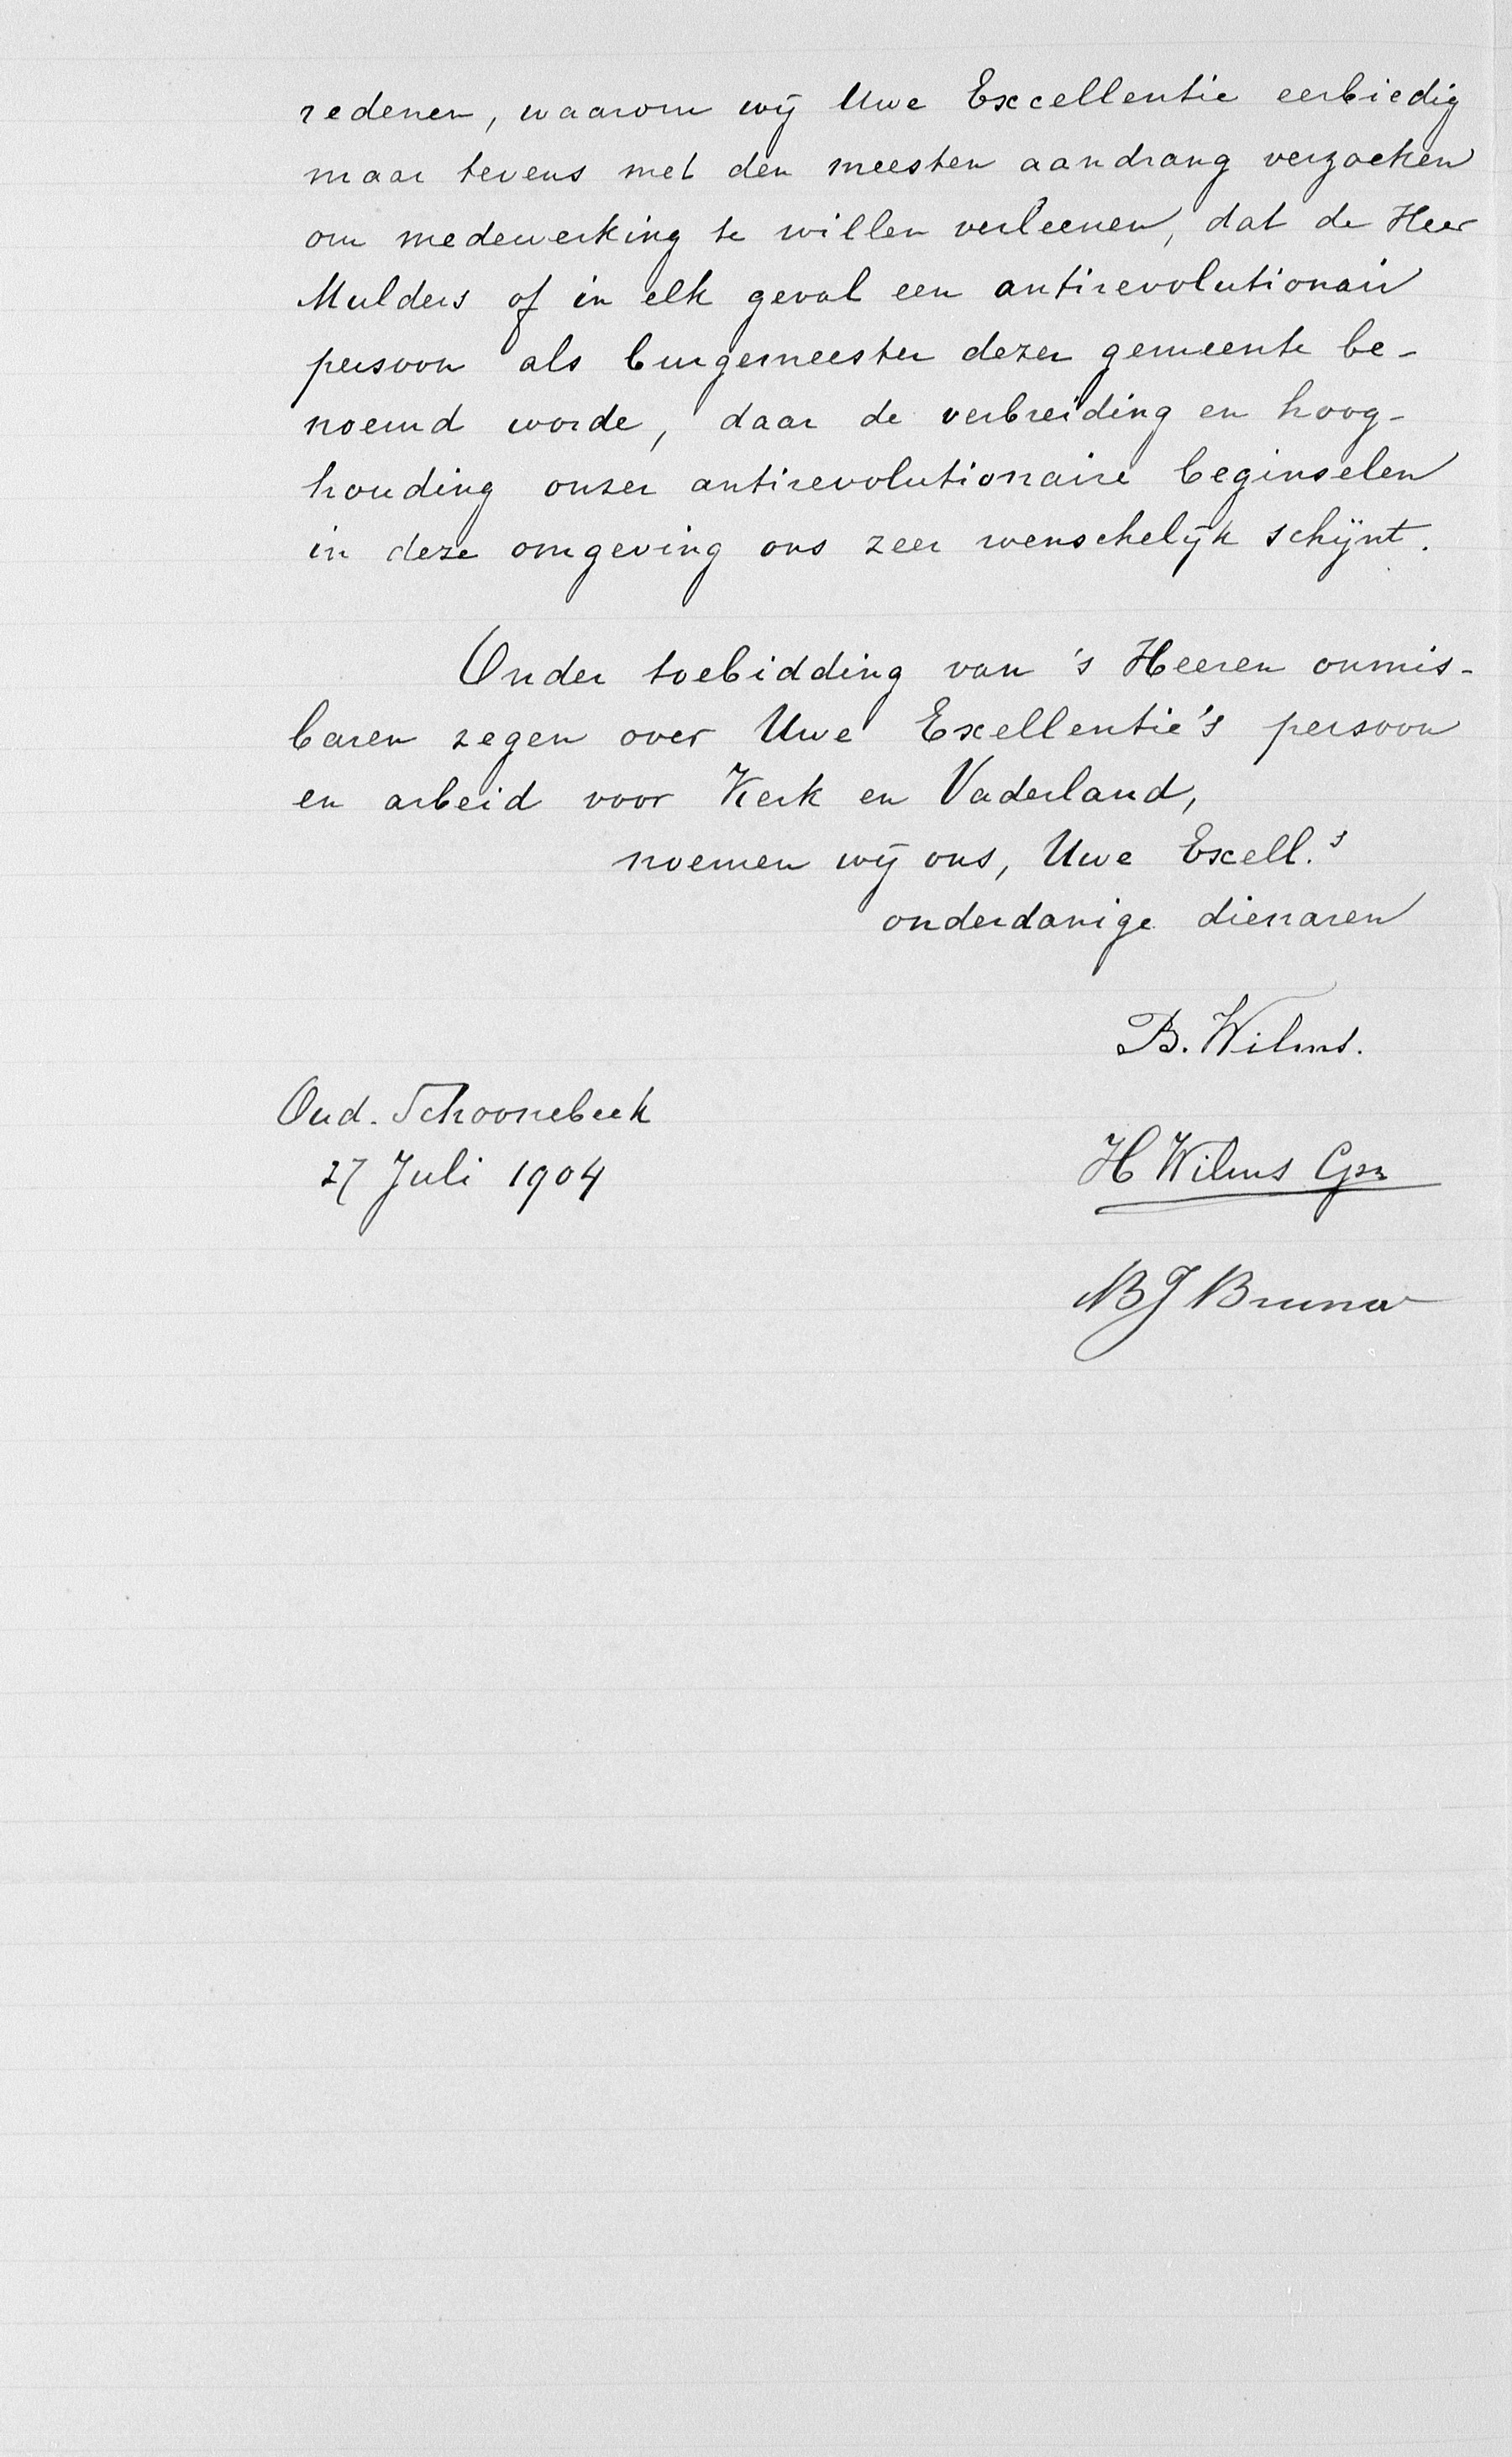 redenen, waarom wij Uwe Excellentie eerbiedig
maar tevens met den meesten aandrang verzoeken
om medewerking te willen verleenen, dat de Heer
Mulders of in elk geval een antirevolutionair
persoon als burgemeester dezer gemeente be-
noemd worde, daar de verbreiding en hoog-
houding onzer antirevolutionaire beginselen
in deze omgeving ons zeer wenschelijk schijnt.
Onder toebidding van 's Heeren onmis-
baren zegen over Uwe Excellentie's persoon
en arbeid voor Kerk en Vaderland,
noemen wij ons, Uwe Excell.s
onderdanige dienaren
B. Wilms.
Oud-Schoonebeek
27 Juli 1904
H Wilms Gzn
BJ Bruna